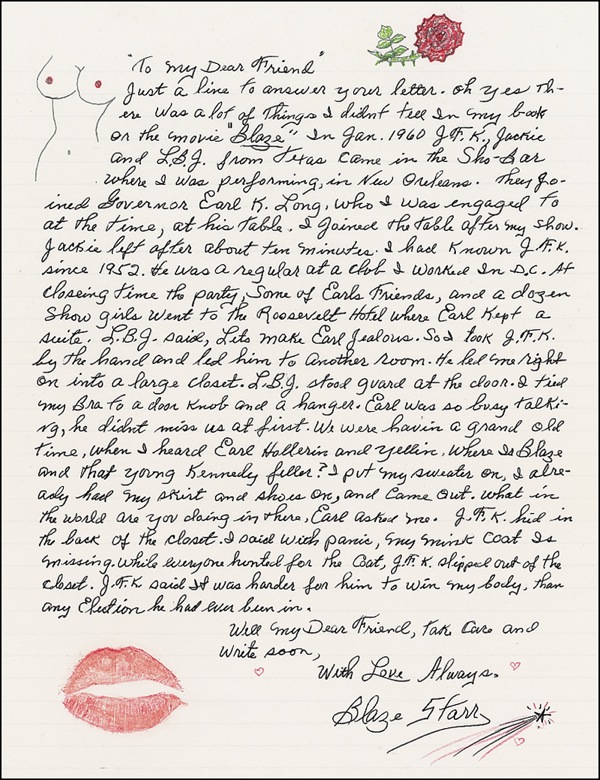 "To my Dear Friend"
Just a line to answer your letter. oh yes Th-
ere was a lot of Things I didnt tell In my book
or the movie "Blaze". In Jan. 1960 J.F.K., Jackie
and L.B.J. from Texas came in the Sho-Bar
where I was performing, in New Orleans. They jo-
ined Governor Earl K. Long, who I was engaged to
at the time, at his table. I joined the table after my show.
Jackie left after about ten minutes. I had known J.F.K.
since 1952. He was a regular at a club I worked In D.C. At
closeing time the party, Some of Earls Friends, and a dozen
Show girls went to the Roosevelt Hotel where Earl kept a
suite. L.B.J. said, Lets make Earl Jealous. So I took J.F.K.
by the hand and led him to another room. He led me right
on into a large closet. L.B.J. stood guard at the door. I tied
my Bra to a door knob and a hanger. Earl was so busy talki-
ng, he didnt miss us at first. We were havin a grand old
time, when I heard Earl Hollerin and yellin, where Is Blaze
and that young Kennedy feller? I put my sweater on, I alre-
ady had my skirt and shoes on, and came out. What in
the world are you doing in there, Earl asked me. J.F.K. hid in
the back of the closet. I said with panic, my mink coat Is
missing. While everyone hunted for the Coat, J.F.K. slipped out of the
closet. J.F.K said It was harder for him to win my body, than
any Election he had ever been in.
Well my Dear Friend, take care and
write soon,
With Love Always.
Blaze Starr